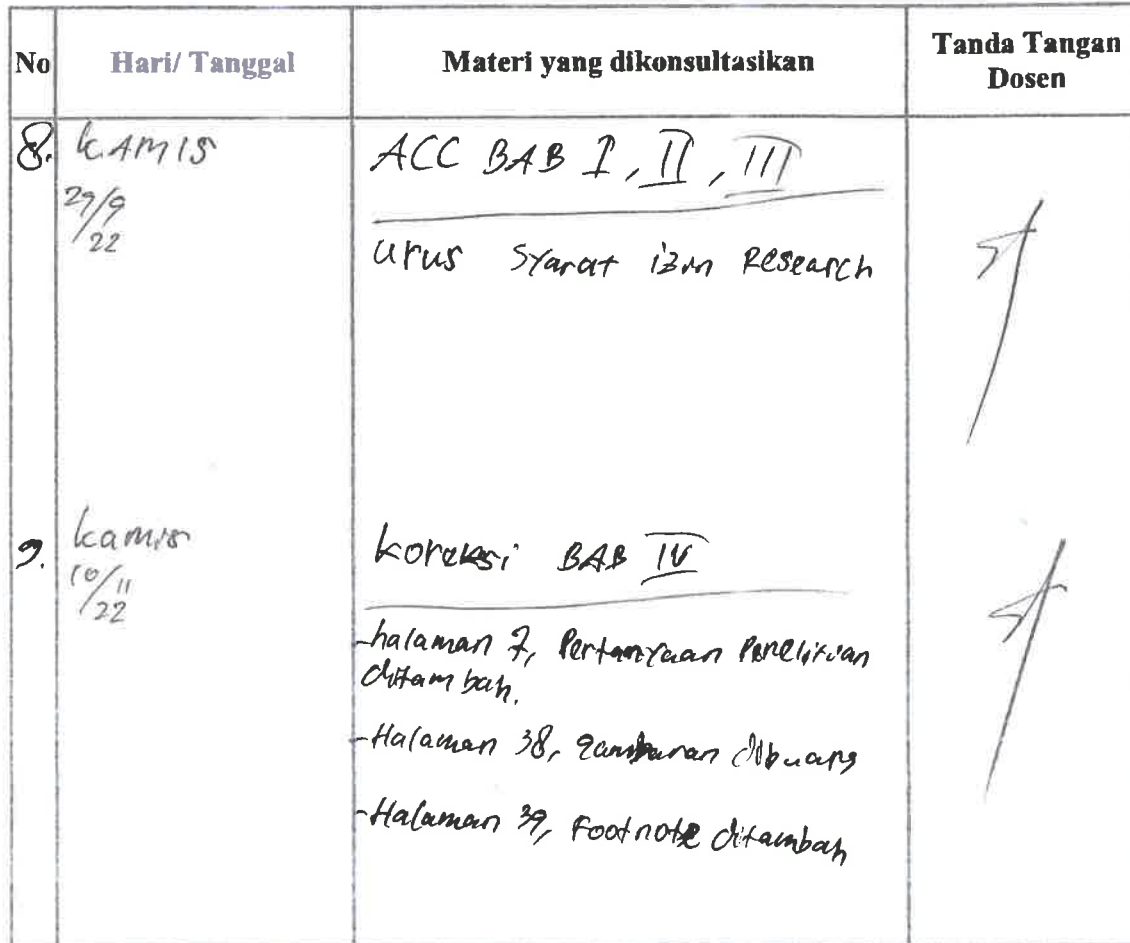 No Hari/ Tanggal Materi yang dikonsultasikan Tanda Tangan
Dosen
8. KAMIS ACC BAB I, II, III
29/9/22
urus syarat izin Research
9. kamis koreksi BAB IV
10/11/22
-halaman 7, Pertanyaan Penelitian
ditambah.
-Halaman 38, gambaran dibuang
-Halaman 39, Footnote ditambah